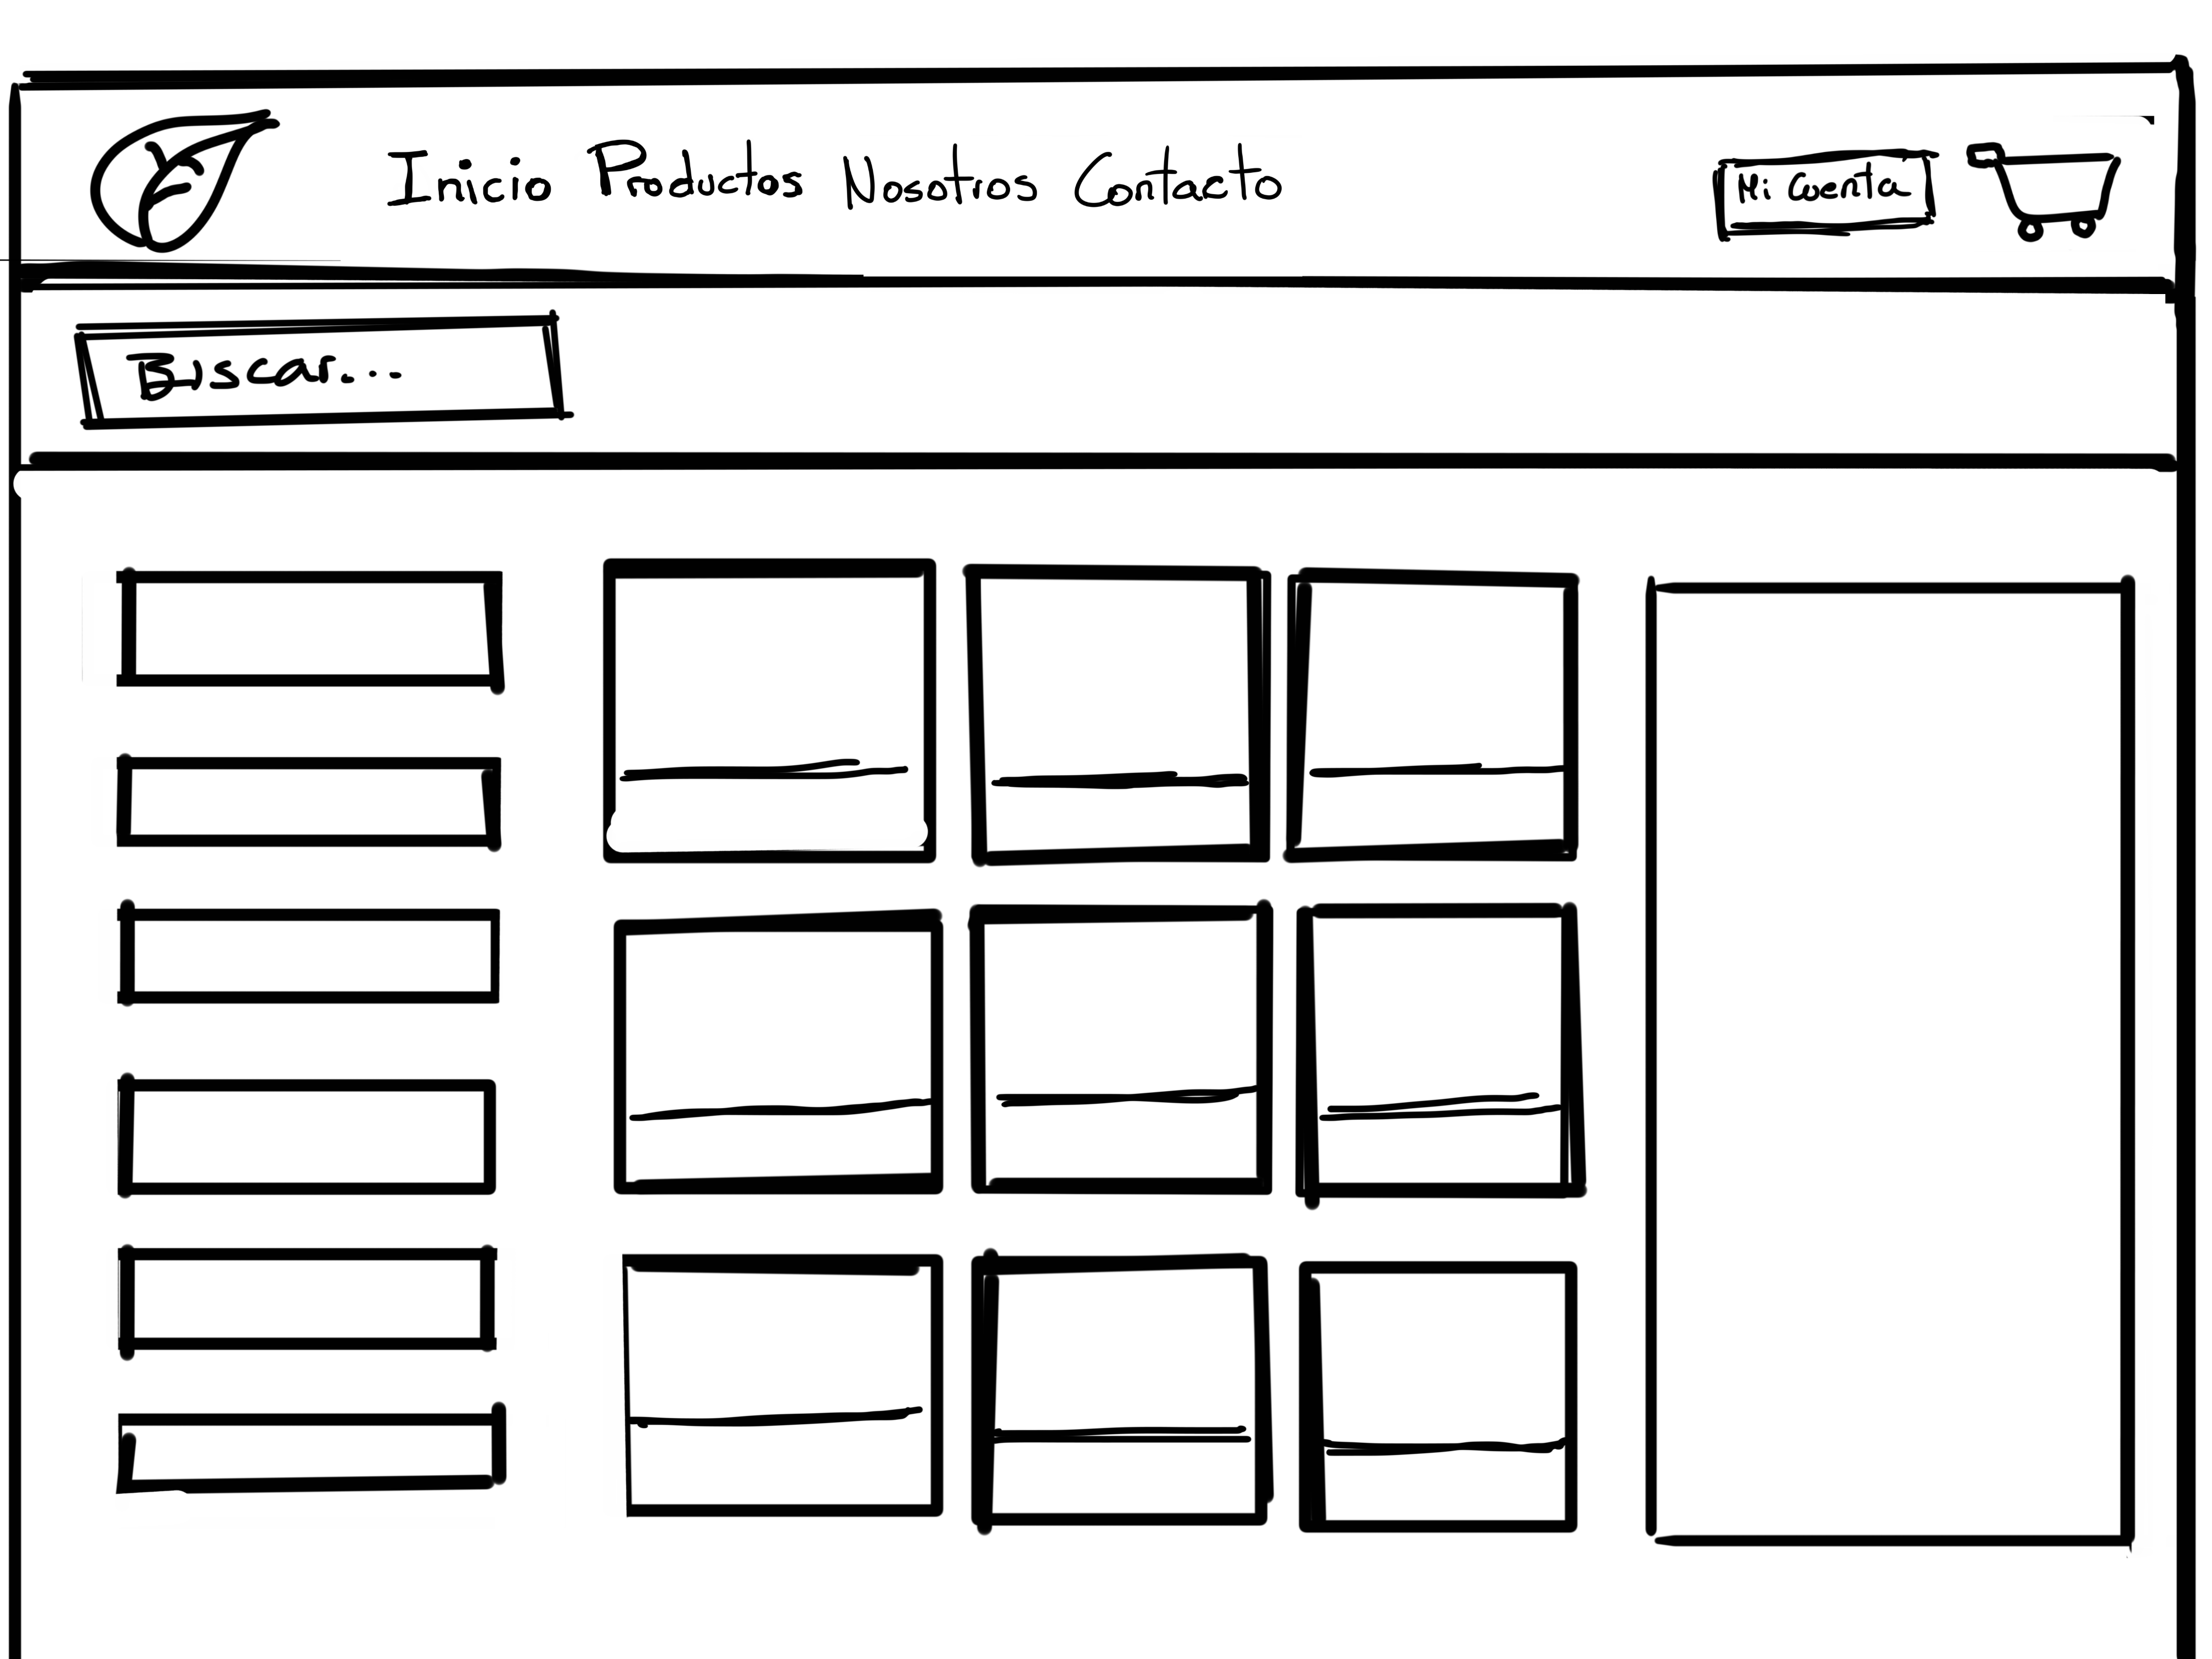 Inicio Productos Nosotros Contacto
Mi Cuenta
Buscar....